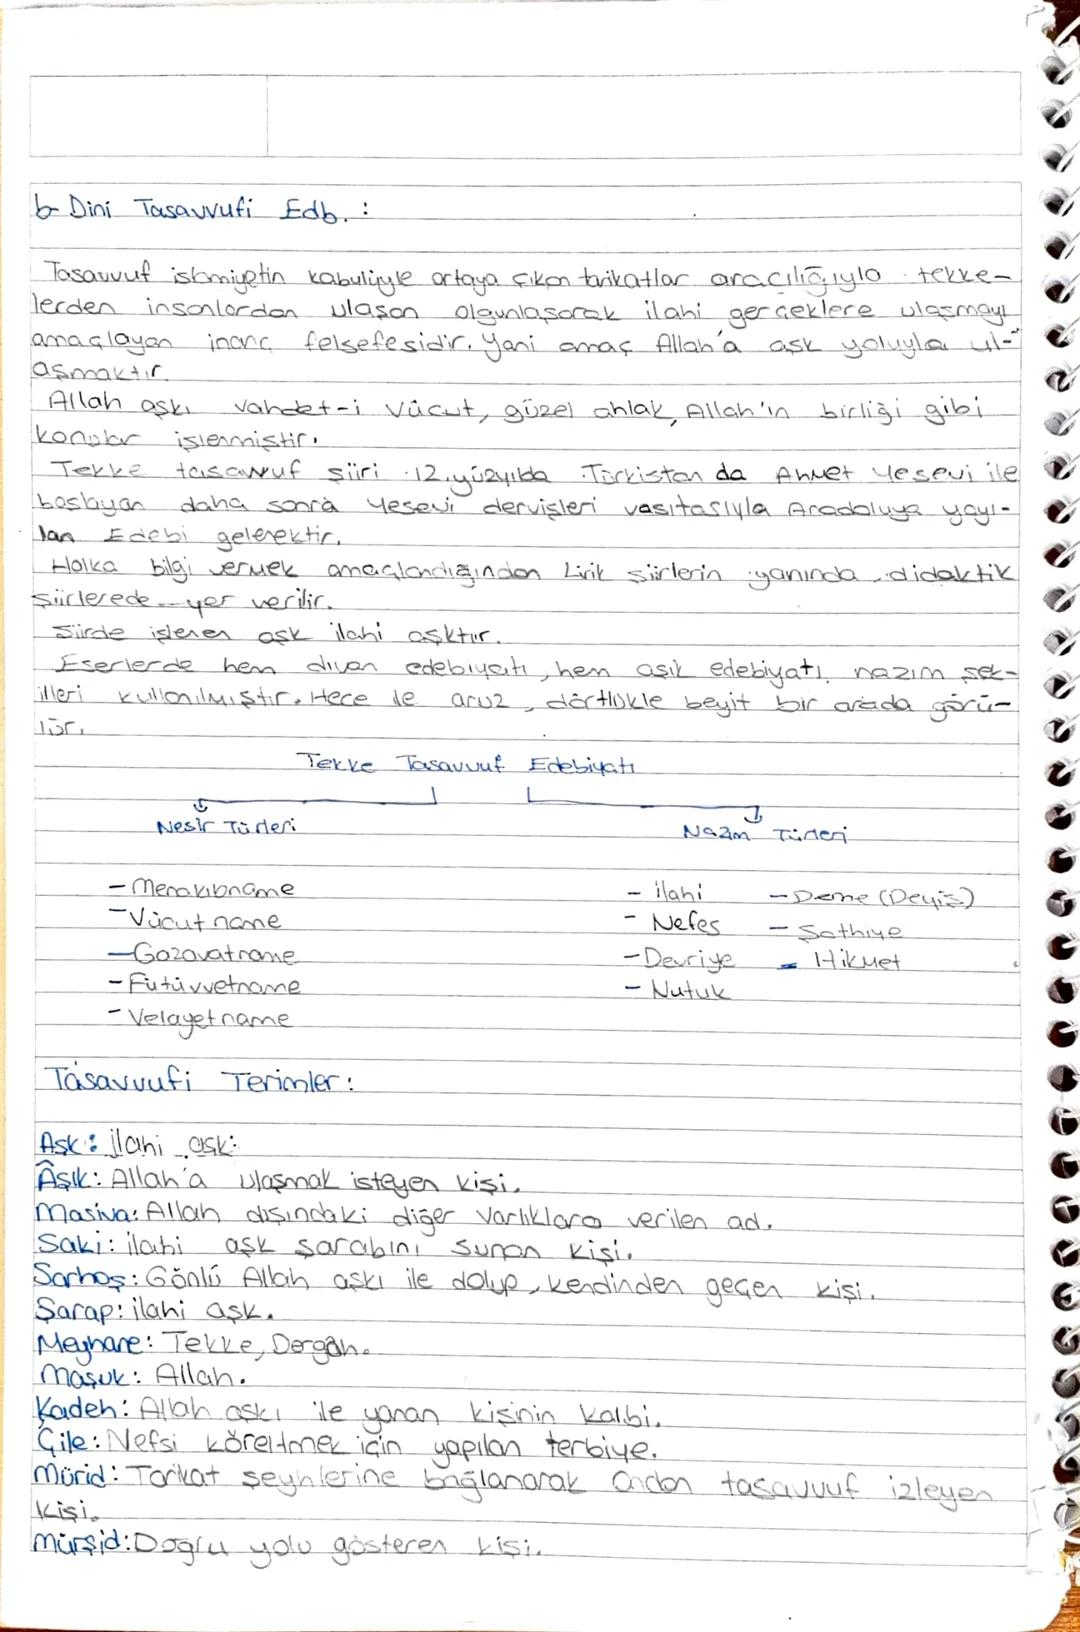 b- Dini Tasavvufi Edb. :
Tasavvuf islamiyetin kabuliyle ortaya çıkan tarikatlar aracılığıyla tekke-
lerden insanlardan ulaşan olgunlaşarak ilahi gerçeklere ulaşmayı
amaçlayan inanç felsefesidir. Yani amaç Allah'a aşk yoluyla ul-
aşmaktır.
Allah aşkı vahdet-i vücut, güzel ahlak, Allah'ın birliği gibi
konular işlenmiştir.
Tekke tasavvuf şiiri 12. yüzyılda Türkistan da Ahmet Yesevi ile
başlayan daha sonra Yesevi dervişleri vasıtasıyla Anadoluya yayı-
lan Edebi gelenektir.
Halka bilgi vermek amaçlandığından Lirik şiirlerin yanında didaktik
şiirlerede yer verilir.
Şiirde işlenen aşk ilahi aşktır.
Eserlerde hem divan edebiyatı, hem aşık edebiyatı nazım şek-
illeri kullanılmıştır. Hece ile aruz, dörtlükle beyit bir arada görü-
lür.
Tekke Tasavvuf Edebiyatı
Nesir Türleri Nazım Türleri
- Menakıbname - ilahi - Deme (Deyiş)
- Vücutname - Nefes - Şathiye
- Gazavatname - Devriye - Hikmet
- Fütüvvetname - Nutuk
- Velayetname
Tasavvufi Terimler :
Aşk : İlahi aşk.
Âşık : Allah'a ulaşmak isteyen kişi.
Masiva: Allah dışındaki diğer varlıklara verilen ad.
Saki : ilahi aşk şarabını sunan kişi.
Sarhoş : Gönlü Allah aşkı ile dolup, kendinden geçen kişi.
Şarap: ilahi aşk.
Meyhane : Tekke, Dergâh.
Maşuk : Allah.
Kadeh : Allah aşkı ile yanan kişinin kalbi.
Çile : Nefsi köreltmek için yapılan terbiye.
Mürid : Tarikat şeyhlerine bağlanarak ondan tasavvuf izleyen
kişi.
Mürşid: Doğru yolu gösteren kişi.